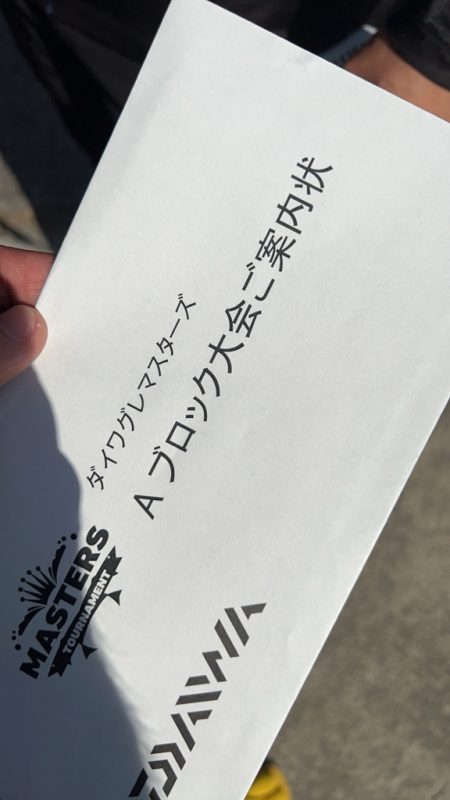 ダイワグレマスターズ
A ブロック大会ご案内状
MASTERS
TOURNAMENT
DAIWA